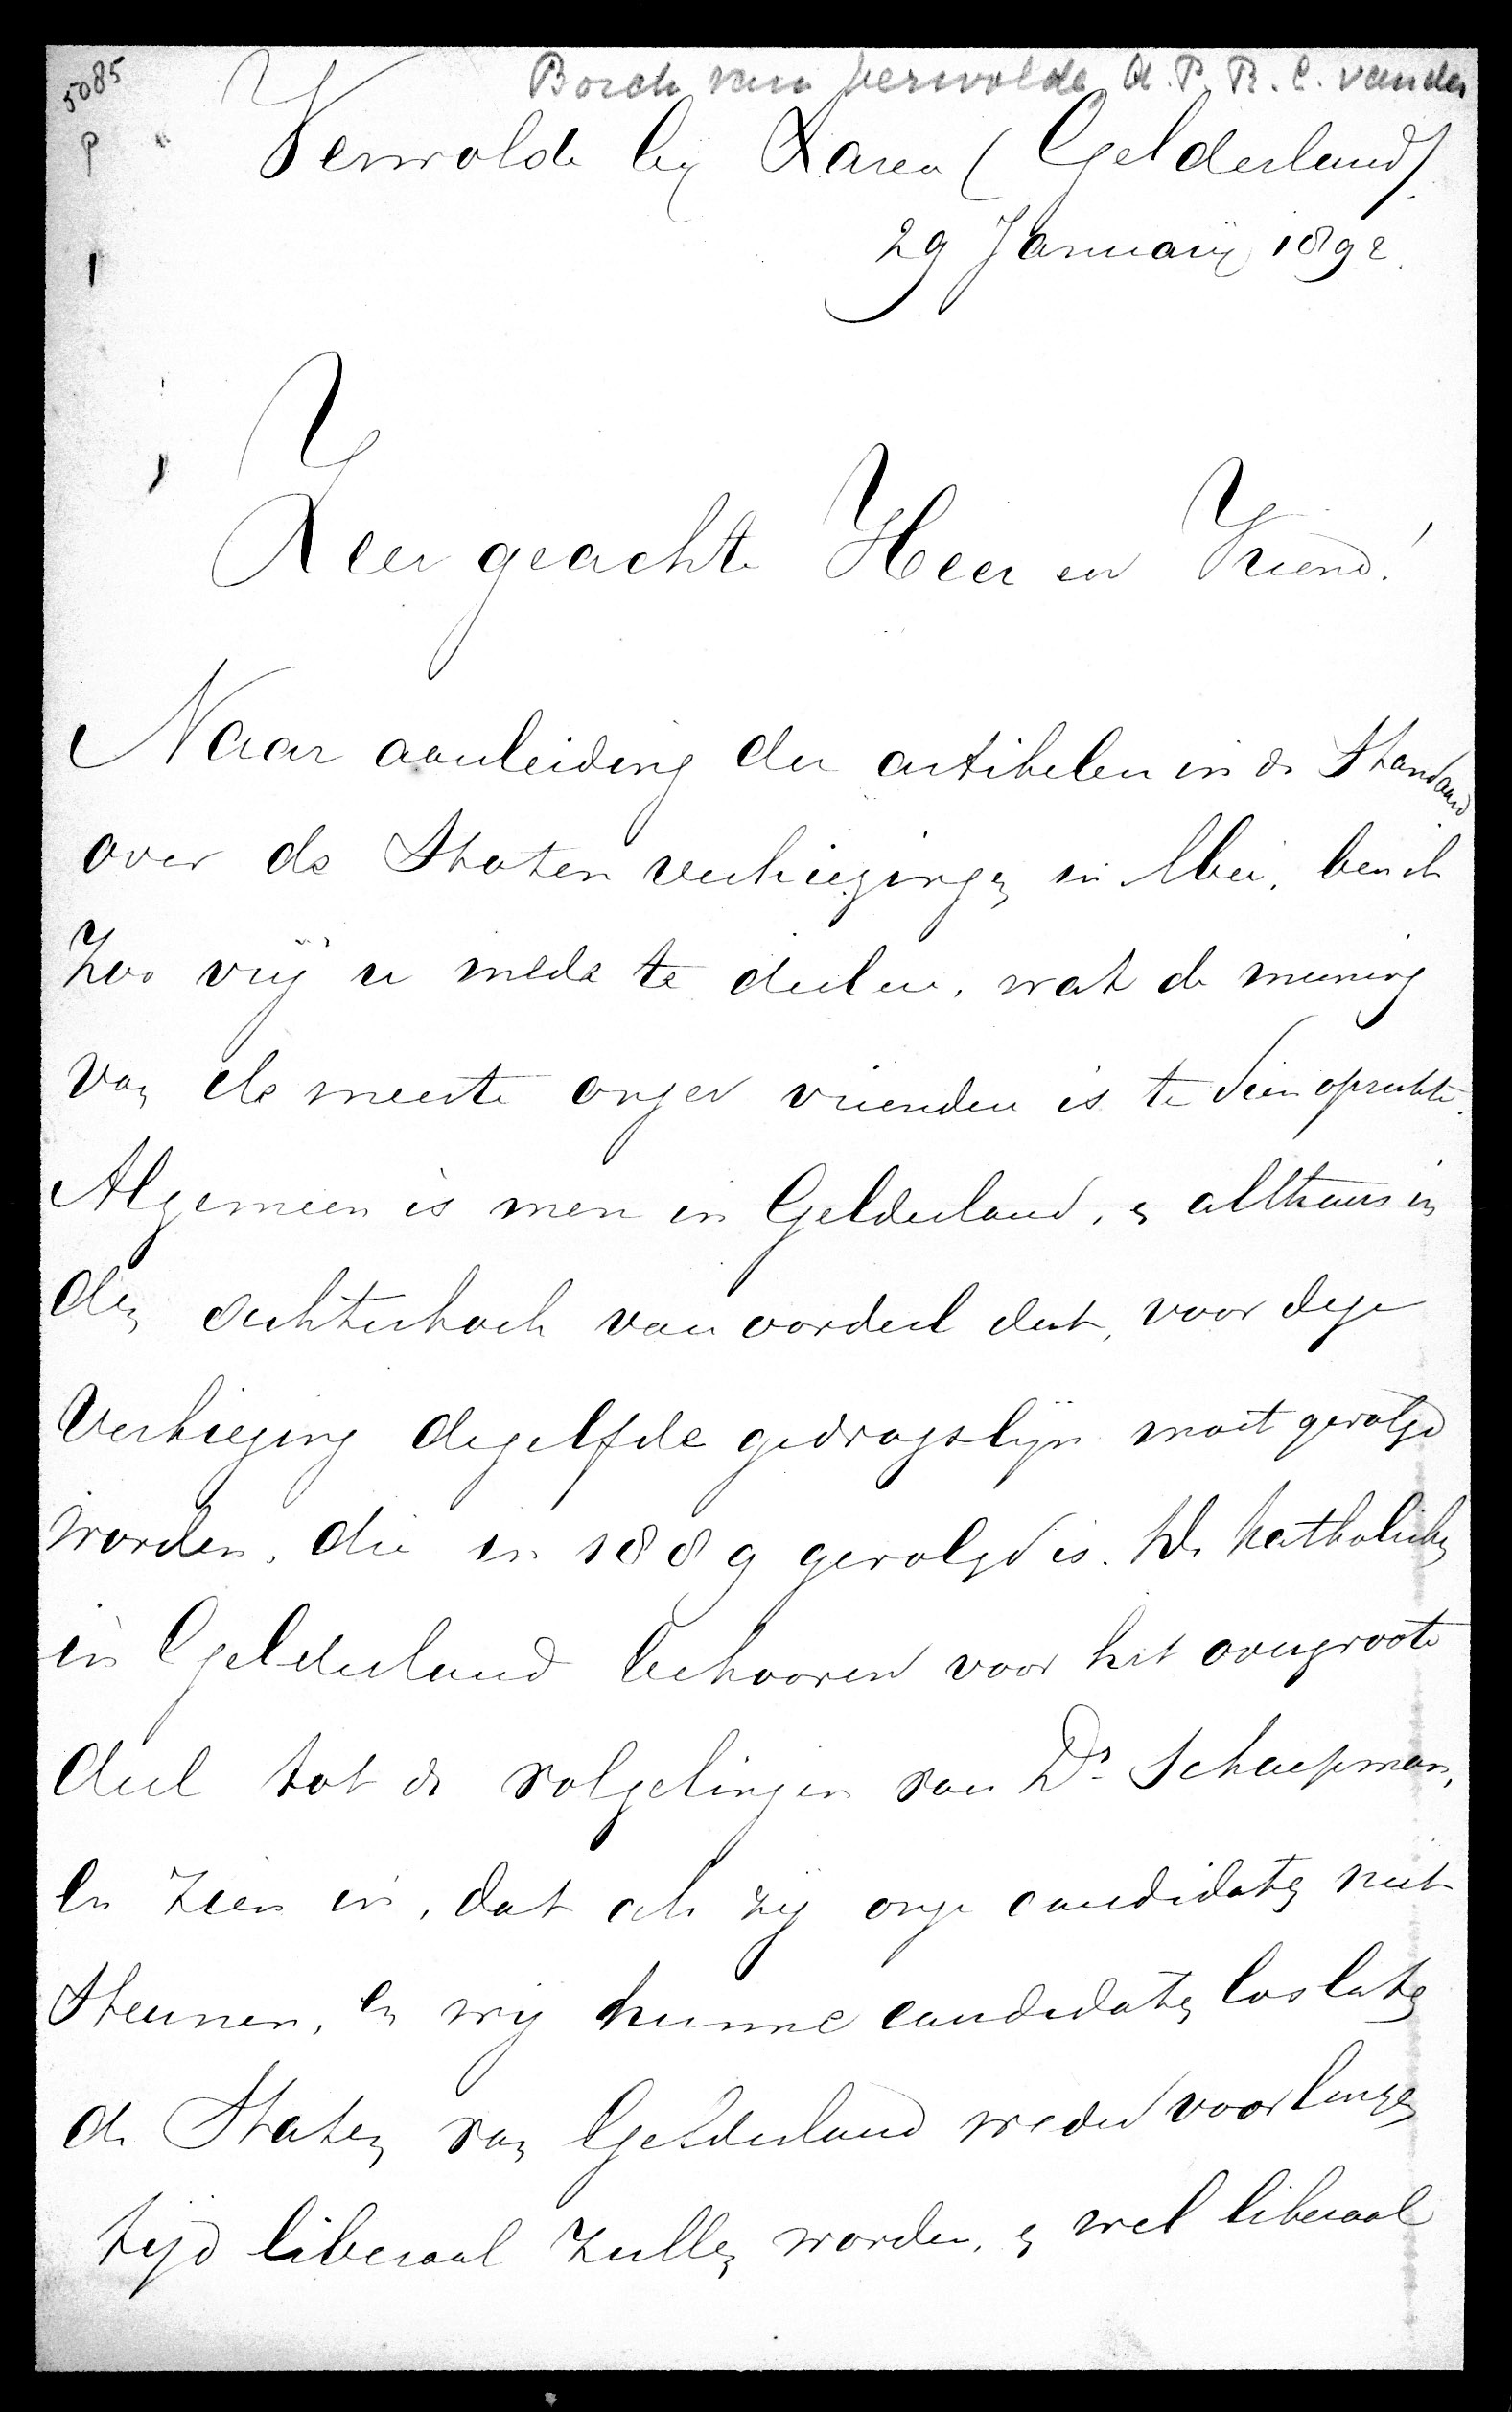 5085
P
1
Borch van Verwolde A. P. R. C. van der
Verwolde bij Laren (Gelderland).
29 Januarij 1892.
Zeer geachte Heer en Vriend!
Naar aanleiding der artikelen in de Standaard
over de Staten verkiezingen in Mei, ben ik
Zoo vrij u mede te deelen, wat de meening
van de meeste onzer vrienden is te dien opzichte.
Algemeen is men in Gelderland, en althans in
den achterhoek van oordeel dat, voor deze
Verkiezing dezelfde gedragslijn moet gevolgd
worden, die in 1889 gevolgd is. De Katholieken
in Gelderland behooren voor het overgroote
deel tot de volgelingen van Dr Schaepman,
en zien in, dat als zij onze candidaten niet
Steunen, en wij hunne candidaten loslaten
de Staten van Gelderland weder voor langen
tijd liberaal zullen worden, en wel liberaal